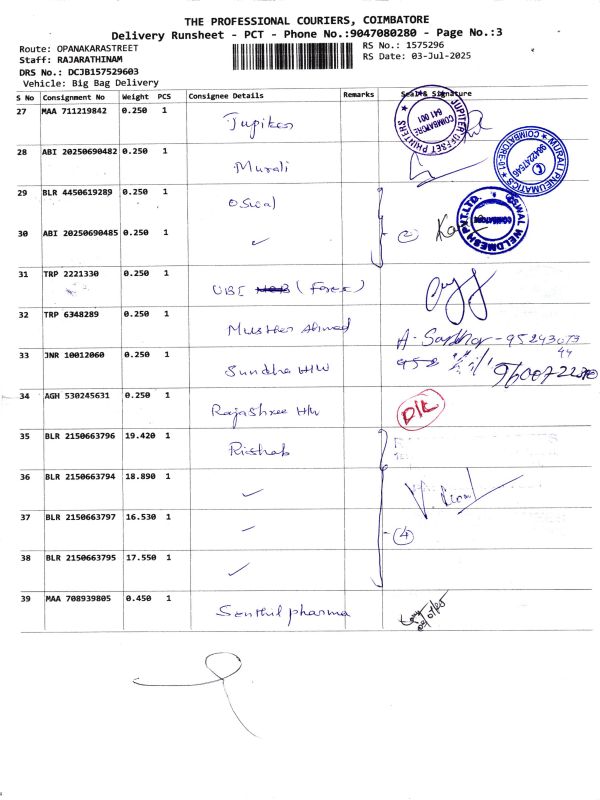 THE PROFESSIONAL COURIERS, COIMBATORE
Delivery Runsheet - PCT - Phone No.:9047080280 - Page No.:3
Route: OPANAKARASTREET
RS No.: 1575296
Staff: RAJARATHINAM
RS Date: 03-Jul-2025
DRS No.: DCJB157529603
Vehicle: Big Bag Delivery
S No Consignment No Weight PCS Consignee Details Remarks Seal & Signature
27 MAA 711219842 0.250 1 Jupiter
JUPITER OFFSET PRINTERS COIMBATORE 641 001
28 ABI 20250690482 0.250 1 Murali
MURALI PNEUMATICS COIMBATORE-01 9842247546
29 BLR 4450619289 0.250 1 Oswal
OSWAL WELDMESH PVT.LTD. COIMBATORE
30 ABI 20250690485 0.250 1 ✓ 2
31 TRP 2221330 0.250 1 UBI (Forex)
32 TRP 6348289 0.250 1 Musther Ahmed
33 JNR 10012060 0.250 1 Sundha H/W
34 AGH 530245631 0.250 1 Rajashree H/W D/L
35 BLR 2150663796 19.420 1 Rishab
36 BLR 2150663794 18.890 1 ✓
37 BLR 2150663797 16.530 1 ✓ 4
38 BLR 2150663795 17.550 1 ✓
39 MAA 708939805 0.450 1 Senthil pharma